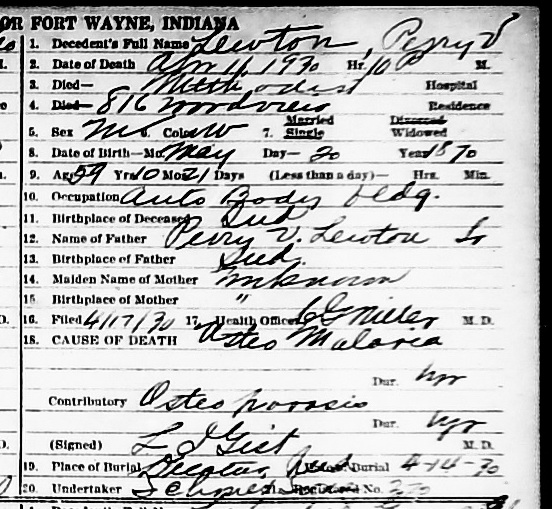 OR FORT WAYNE, INDIANA
1. Decedent's Full Name Lewton, Perry V
2. Date of Death Apr 11, 1930 Hr. 10 P M.
3. Died— Methodist Hospital
4. Died— 816 Residence
5. Sex M 6. Color W 7. Married Single Divorced Widowed
8. Date of Birth—Mo. May Day— 20 Year 1870
9. Age 59 Yrs. 10 Mos. 21 Days (Less than a day)— Hrs. Min.
10. Occupation Auto Body bldg.
11. Birthplace of Deceased Ind
12. Name of Father Perry V. Lewton Sr
13. Birthplace of Father Ind.
14. Maiden Name of Mother unknown
15. Birthplace of Mother "
16. Filed 4/17/30 17. Health Officer Miller M. D.
18. CAUSE OF DEATH Osteo Malaria
Dur. yr
Contributory Osteo porosis
Dur. yr
(Signed) Gist M. D.
19. Place of Burial Decatur, Ind Burial 4-14-30
20. Undertaker No.